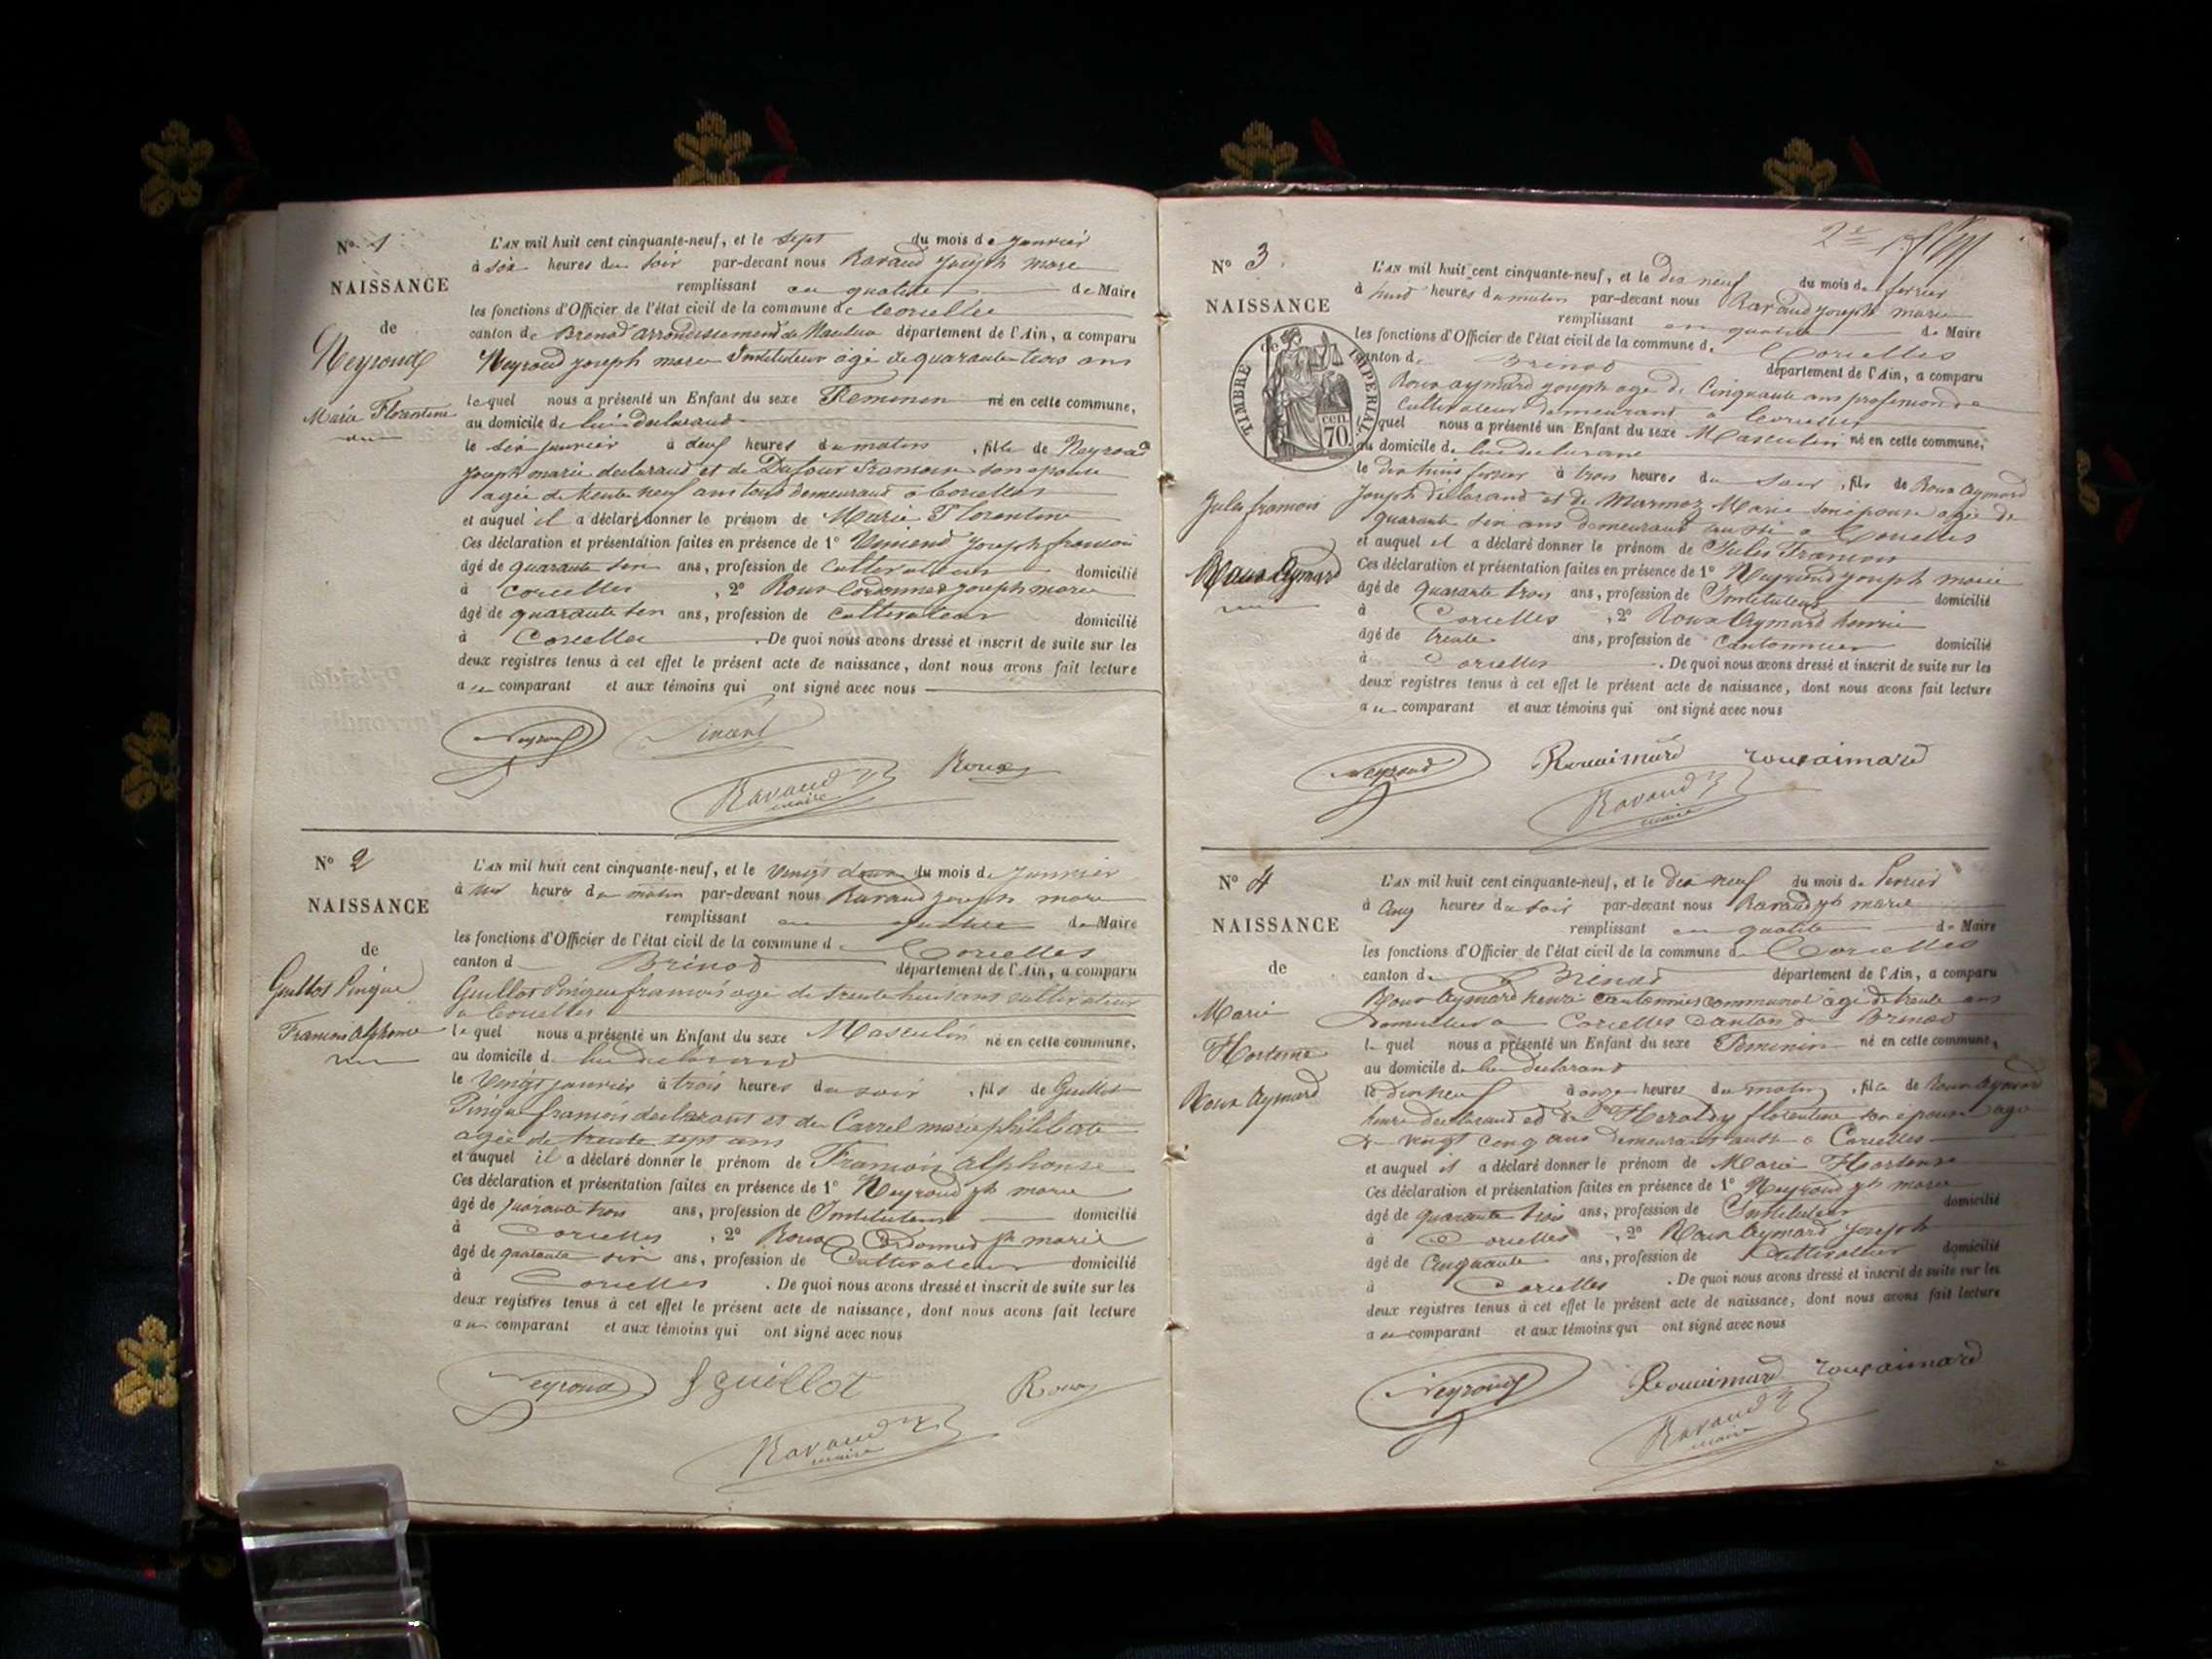 N° 1
NAISSANCE
de
Neyroud
Marie Florentine
L'AN mil huit cent cinquante-neuf, et le sept du mois de janvier
à six heures du soir par-devant nous Ravaud Joseph marie
remplissant en qualité de Maire
les fonctions d'Officier de l'état civil de la commune de Corcelles
canton de Brenod arrondissement de Nantua département de l'Ain, a comparu
Neyroud joseph marie Instituteur âgé de quarante trois ans
lequel nous a présenté un Enfant du sexe Feminin né en cette commune,
au domicile de lui déclarand
le six janvier à deux heures du matin, fille de Neyroud
Joseph marie declarand et de Dufour Francoise son epouse
agée de trente neuf ans tous demeurand a Corcelles
et auquel il a déclaré donner le prénom de Marie Florentine
Ces déclaration et présentation faites en présence de 1° joseph francois
âgé de quarante six ans, profession de Cultivateur domicilié
à Corcelles, 2° Roux Cordonnes joseph marie
âgé de quarante six ans, profession de cultivateur domicilié
à Corcelles. De quoi nous avons dressé et inscrit de suite sur les
deux registres tenus à cet effet le présent acte de naissance, dont nous avons fait lecture
au comparant et aux témoins qui ont signé avec nous
Neyroud
Roux
Ravaud
maire
N° 2
NAISSANCE
de
Guillot Pingue
Francois Alphonse
L'AN mil huit cent cinquante-neuf, et le Vingt deux du mois de janvier
à heures du matin par-devant nous Ravaud joseph marie
remplissant en qualité de Maire
les fonctions d'Officier de l'état civil de la commune de Corcelles
canton d Brenod département de l'Ain, a comparu
Guillot Pingue francois agé de trente huit ans cultivateur
a Corcelles
lequel nous a présenté un Enfant du sexe Masculin né en cette commune,
au domicile de lui declarand
le Vingt janvier à trois heures du soir, fils de Guillot
Pingue francois declarant et de Carrel marie philiberte
agée de trente sept ans
et auquel il a déclaré donner le prénom de Francois Alphonse
Ces déclaration et présentation faites en présence de 1° Neyroud jh marie
âgé de quarante trois ans, profession de Instituteur domicilié
à Corcelles, 2° Roux Cordonnes jh marie
âgé de quarante six ans, profession de Cultivateur domicilié
à Corcelles. De quoi nous avons dressé et inscrit de suite sur les
deux registres tenus à cet effet le présent acte de naissance, dont nous avons fait lecture
au comparant et aux témoins qui ont signé avec nous
Neyroud f guillot Roux
Ravaud
maire
2e
N° 3
NAISSANCE
TIMBRE IMPERIAL
cen
70.
Jules francois
Roux Aymard
L'AN mil huit cent cinquante-neuf, et le dix neuf du mois de fevrier
à huit heures du matin par-devant nous Ravaud joseph marie
remplissant en qualité de Maire
les fonctions d'Officier de l'état civil de la commune de Corcelles
canton de Brenod département de l'Ain, a comparu
Roux aymard joseph agé de Cinquante ans profession de
Cultivateur demeurant a Corcelles
lequel nous a présenté un Enfant du sexe Masculin né en cette commune,
au domicile de lui declarand
le dix huit fevrier à trois heures du soir, fils de Roux Aymard
Joseph declarand et de Marmoz Marie son épouse agée de
quarante six ans demeurant aussi a Corcelles
et auquel il a déclaré donner le prénom de Jules Francois
Ces déclaration et présentation faites en présence de 1° Neyroud joseph marie
âgé de quarante trois ans, profession de Instituteur domicilié
à Corcelles, 2° Roux Aymard henrie
âgé de trente ans, profession de Cantonnier domicilié
à Corcelles. De quoi nous avons dressé et inscrit de suite sur les
deux registres tenus à cet effet le présent acte de naissance, dont nous avons fait lecture
au comparant et aux témoins qui ont signé avec nous
Neyroud Rouaimard rouxaimard
Ravaud
maire
N° 4
NAISSANCE
de
Marie
Hortense
Roux Aymard
L'AN mil huit cent cinquante-neuf, et le dix neuf du mois de Fevrier
à Cinq heures du soir par-devant nous Ravaud jh marie
remplissant en qualité de Maire
les fonctions d'Officier de l'état civil de la commune de Corcelles
canton de Brenod département de l'Ain, a comparu
Roux Aymard henri Cantonnier communal agé de trente ans
Domicilié a Corcelles Canton de Brenod
lequel nous a présenté un Enfant du sexe Feminin né en cette commune,
au domicile de lui declarand
le dix neuf à onze heures du matin, fille de Roux Aymard
henri declarand et de florentine son épouse agée
de vingt cinq ans demeurant aussi a Corcelles
et auquel il a déclaré donner le prénom de Marie Hortense
Ces déclaration et présentation faites en présence de 1° Neyroud jh marie
âgé de quarante trois ans, profession de Instituteur domicilié
à Corcelles, 2° Roux Aymard Joseph
âgé de Cinquante ans, profession de Cultivateur domicilié
à Corcelles. De quoi nous avons dressé et inscrit de suite sur les
deux registres tenus à cet effet le présent acte de naissance, dont nous avons fait lecture
au comparant et aux témoins qui ont signé avec nous
Neyroud Rouaimard rouxaimard
Ravaud
maire